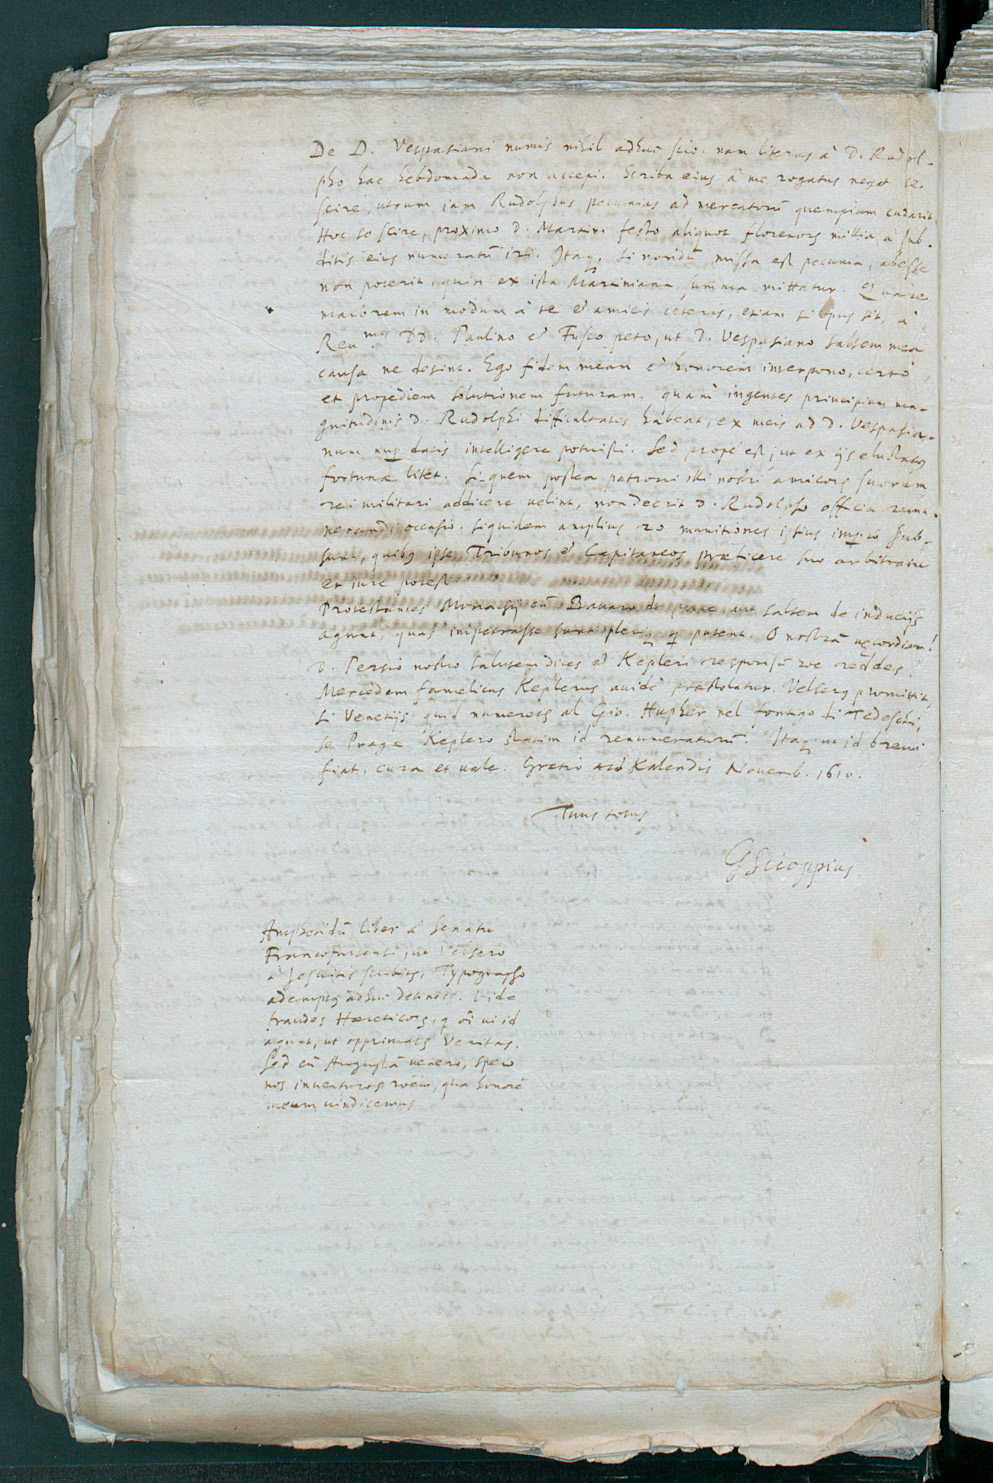 De D. Vespasiani numis nihil adhuc scio. nam literas à D. Rudol-
pho hac hebdomada non accepi. Scriba eius à me rogatus negat se
scire, utrum jam Rudolphus pecunias ad mercatorũ quempiam curarit.
Hoc se scire, proximo D. Martini festo aliquot florenorũ millia à sub-
ditis eius numeratũ iri. Itaq, si nondũ missa est pecunia, abesse
non poterit, quin ex ista Martiniana summa mittatur. Quare
maiorem in modum à te et amicis ceteris, etiam si opus sit, à
Reu.mis DD. Paulino et Fusco peto, ut D. Vespasiano saltem mea
causa ne desint. Ego fidem meam et honorem interpono, certò
et propediem solutionem futuram. quam ingentes principium ma-
gnitudinis D. Rudolphi difficultates habeat, ex meis ad D. Vespasia-
num datis intelligere potuisti. Sed propè est, ut ex ijs
fortunæ litet. Si quem postea patroni illi nostri amicorũ suorum
rei militari addicere uelint, non deerit D. Rudolpho officia remu-
nerandi occasio. Siquidem amplius 20 munitiones istius imperio sub-
sunt, quibq ipse Tribunos et Capitaneos præficere suo arbitratu
et iure potest
Protestantes Monachij cũ Bauaro de pace, aut saltem de inducijs
agunt, quas impetrasse sunt pleriq q putent. O nostrã uecordiam!
D. Persio nostro salutem dices et Kepleri responsũ reddes.
Mercedem famelicus Keplerus auidè præstolatur. Velserq promittit,
si Venetijs quid numeretur al Gio. Hupher nel fontigo di Tedeschi,
se Pragæ Keplero statim id renumeraturũ. Itaq ut id breui
fiat, cura et uale. Gretio Kalendis Nouemb. 1610.
Tuus totus
GScioppius
Amphotidũ liber à Senatu
Francofurtensi, ut Velsero
à Jesuitis scribitur, Typographo
ademptq adhuc detinetur. Vide
fraudes Hæreticorũ, q õi ui id
agunt, ut opprimatur Veritas.
Sed cũ Augustã uenero, spero
nos inuenturos rõem, qua honorẽ
meum uindicemus